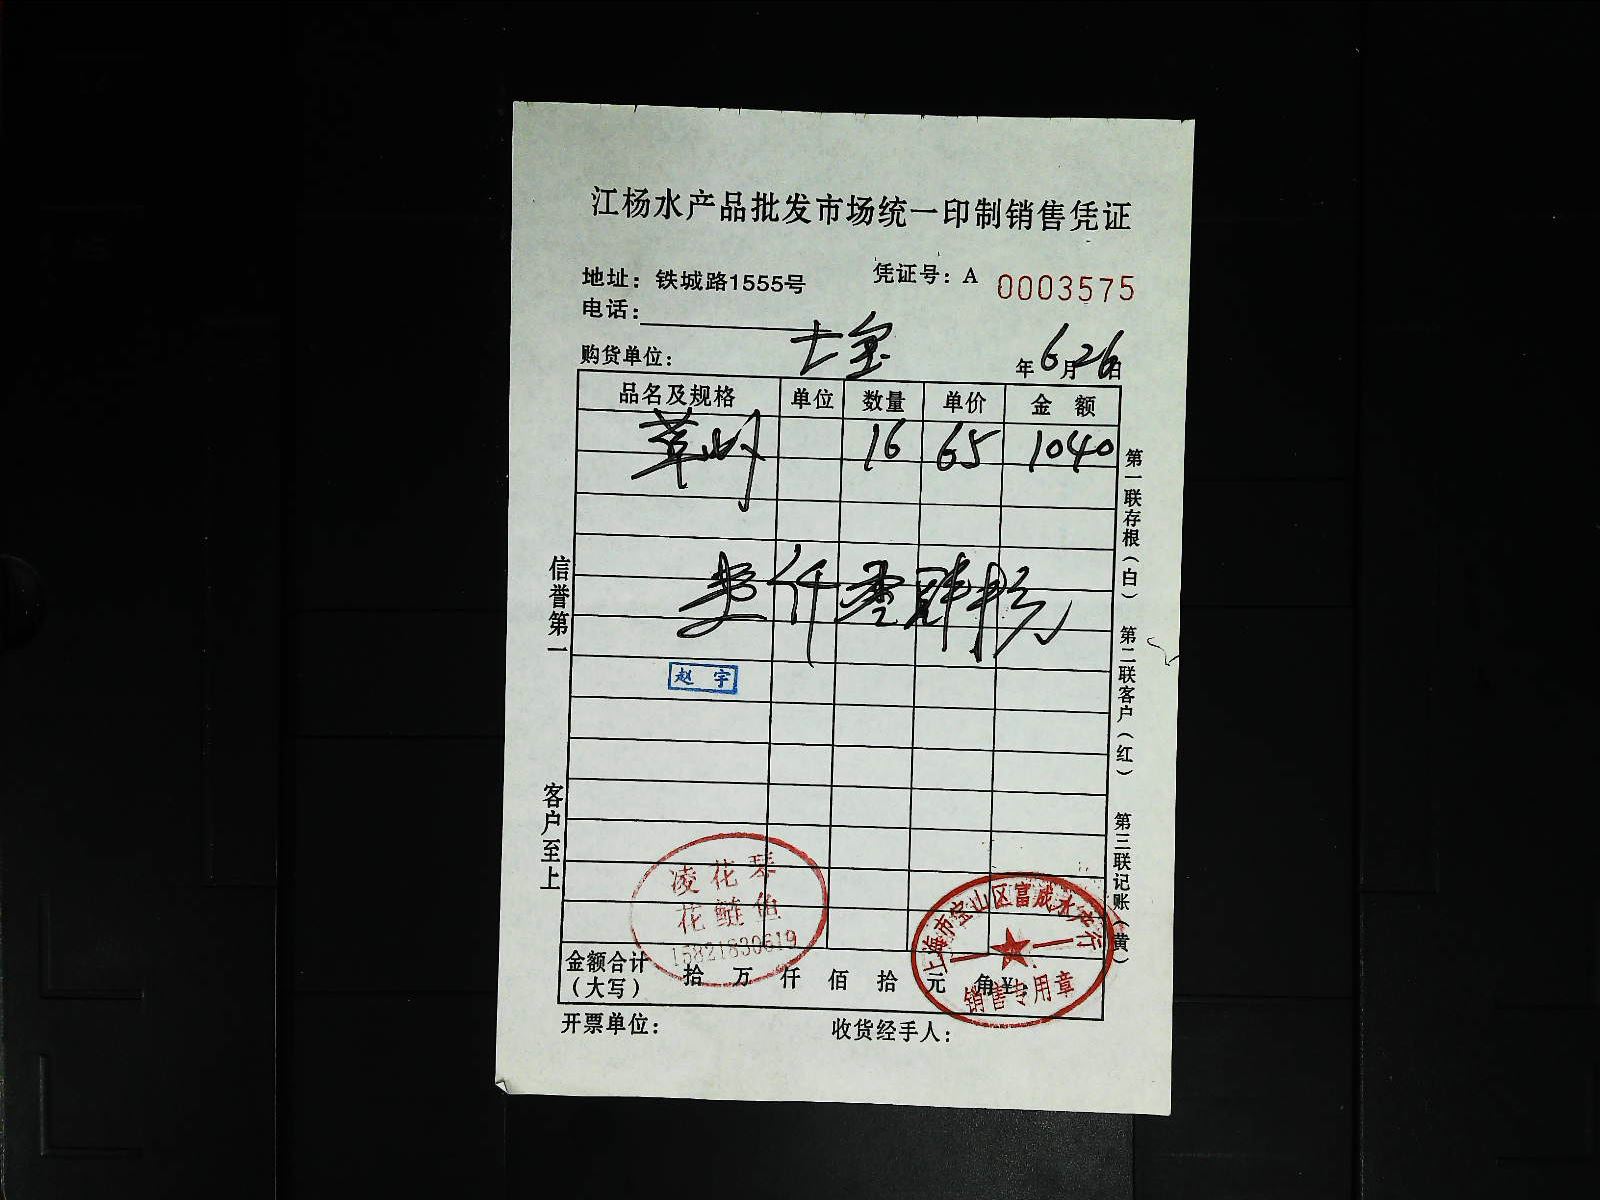 江杨水产品批发市场统一印制销售凭证
地址：铁城路1555号
凭证号：A 0003575
电话：
购货单位：七宝
年6月26日
品名及规格 单位 数量 单价 金额
16 65 1040
壹仟零肆拾元
赵宇
信誉第一
客户至上
第一联存根（白）
第二联客户（红）
第三联记账（黄）
凌花琴
花鲢鱼
15821830619
上海市宝山区富成水产行
销售专用章
金额合计（大写） 拾 万 仟 佰 拾 元 角 ¥：
开票单位：
收货经手人：